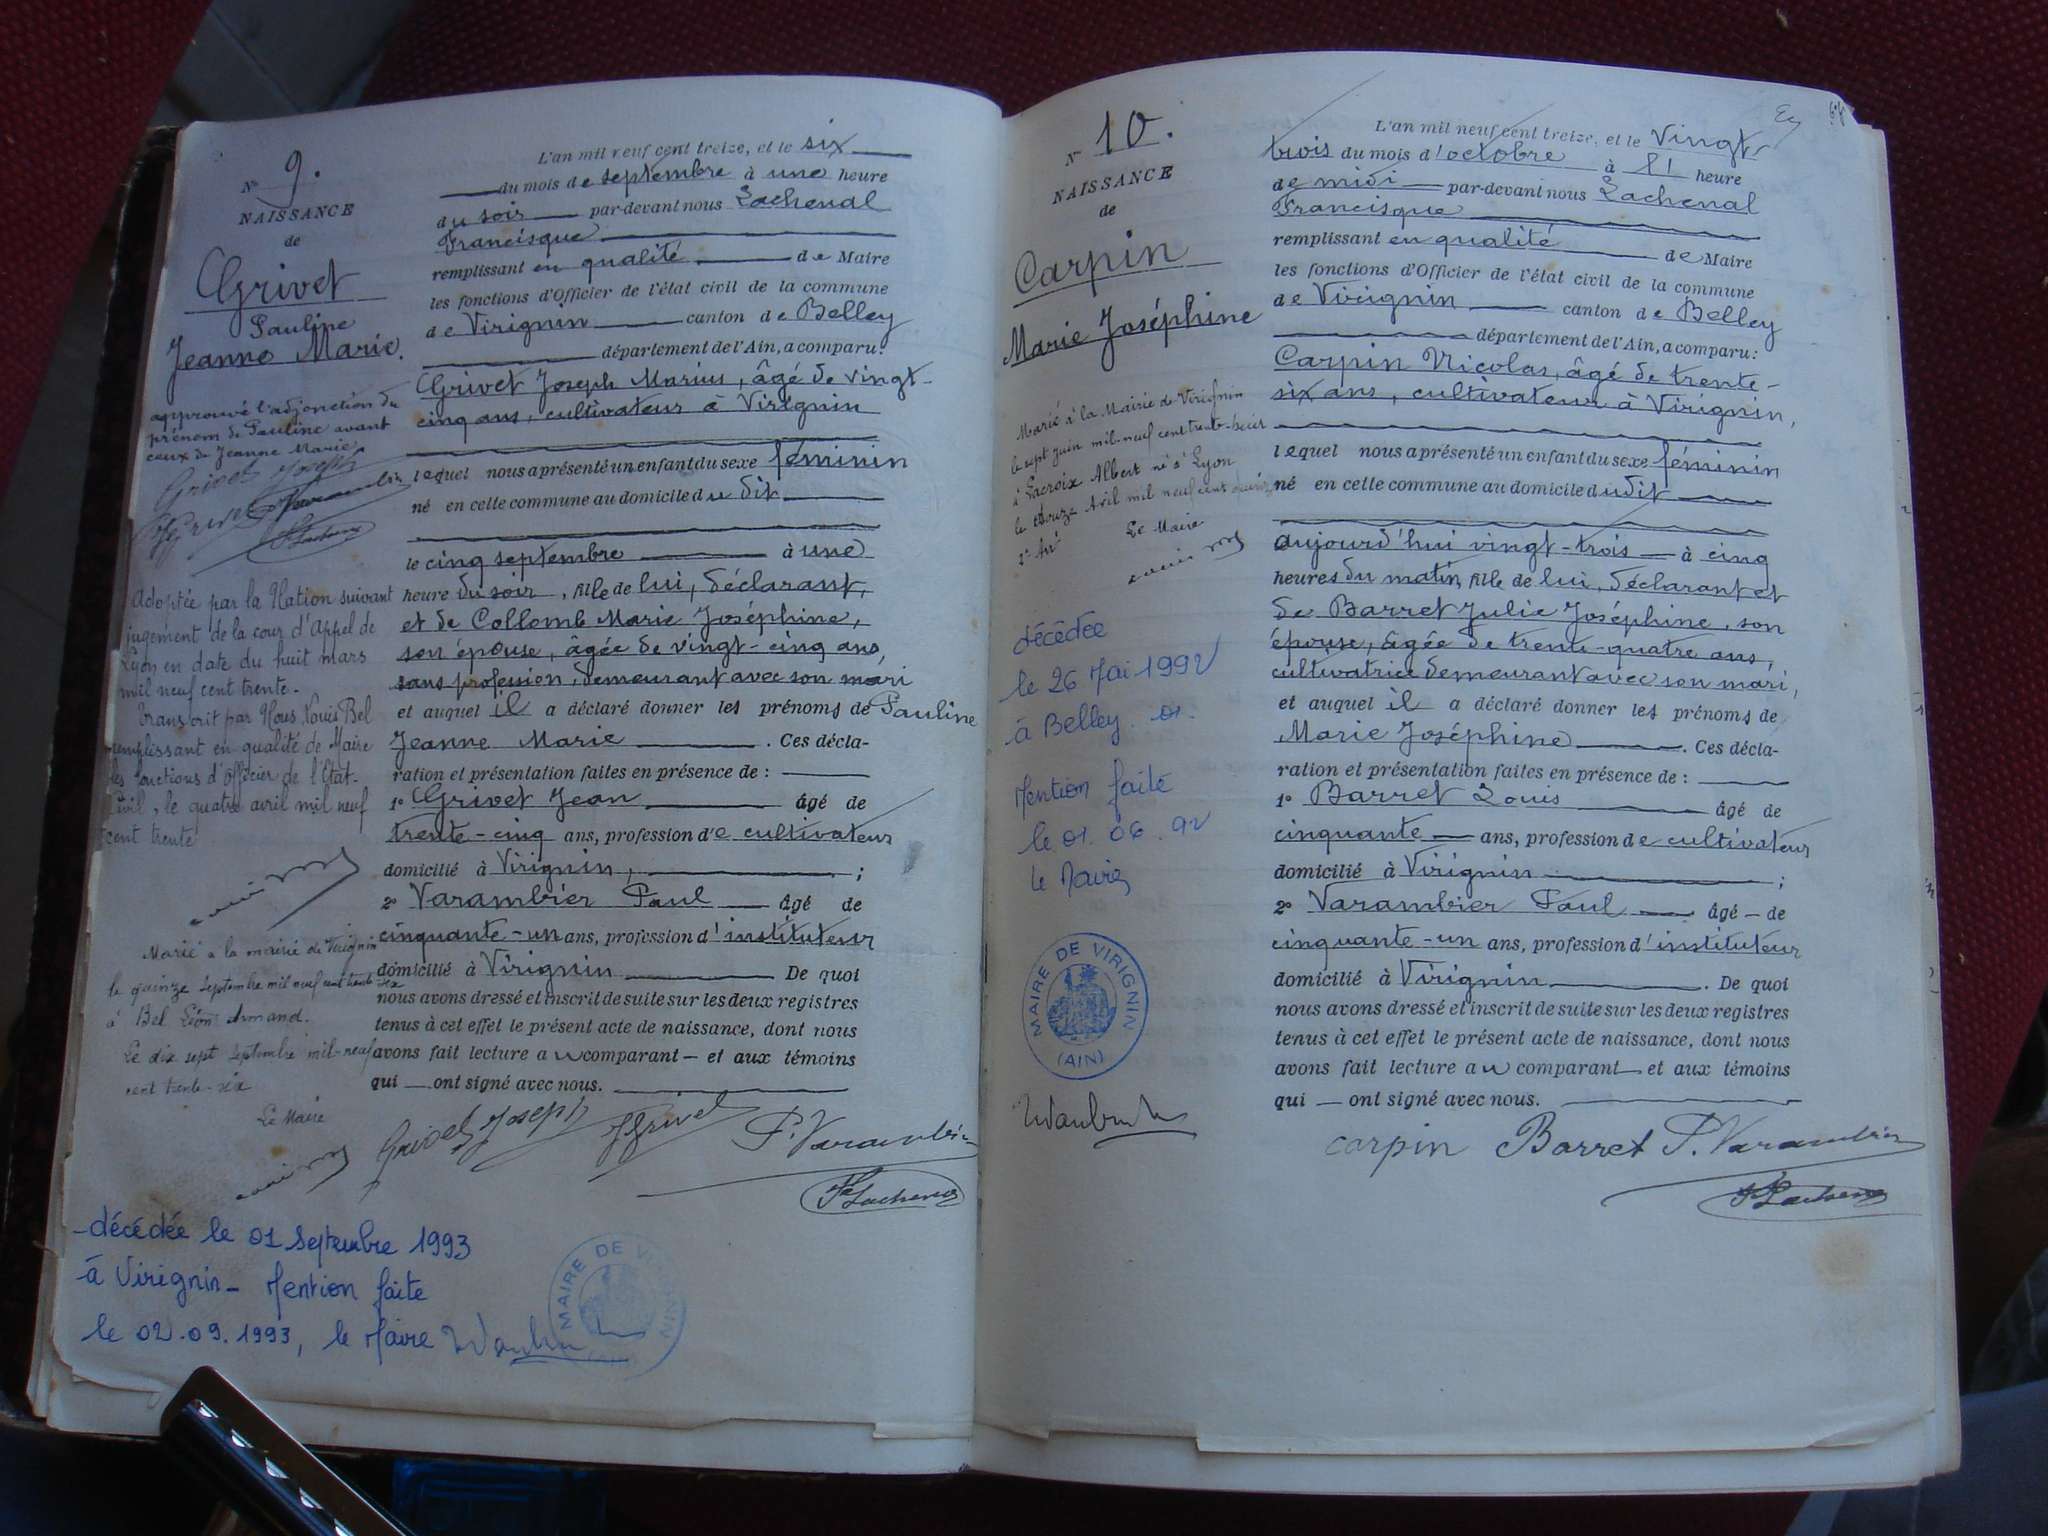 N° 9.
NAISSANCE
de
Grivet
Pauline
Jeanne Marie.
approuvé l'adjonction du
prénom de Pauline avant
ceux de Jeanne Marie
Grivet Joseph
Adoptée par la Nation suivant
jugement de la cour d'Appel de
Lyon en date du huit mars
mil neuf cent trente.
Transcrit par Nous Louis Bel
remplissant en qualité de Maire
les fonctions d'Officier de l'Etat-
Civil, le quatre avril mil neuf
cent trente
Marié à la mairie de Virignin
le quinze septembre mil neuf cent trente six
à Bel Léon Armand.
Le dix sept septembre mil-neuf
cent trente-six
Le Maire
L'an mil neuf cent treize, et le six
du mois de septembre à une heure
du soir par-devant nous Lachenal
Francisque
remplissant en qualité de Maire
les fonctions d'Officier de l'état civil de la commune
de Virignin canton de Belley
département de l'Ain, a comparu:
Grivet Joseph Marius, âgé de vingt-
cinq ans, cultivateur à Virignin
lequel nous a présenté un enfant du sexe féminin
né en cette commune au domicile du dit
le cinq septembre à une
heure du soir, fille de lui, déclarant,
et de Collomb Marie Joséphine,
son épouse, âgée de vingt-cinq ans,
sans profession, demeurant avec son mari
et auquel il a déclaré donner les prénoms de Pauline
Jeanne Marie . Ces décla-
ration et présentation faites en présence de :
1° Grivet Jean âgé de
trente-cinq ans, profession de cultivateur
domicilié à Virignin, ;
2° Varambier Paul âgé de
cinquante-un ans, profession d'instituteur
domicilié à Virignin De quoi
nous avons dressé et inscrit de suite sur les deux registres
tenus à cet effet le présent acte de naissance, dont nous
avons fait lecture au comparant — et aux témoins
qui — ont signé avec nous.
Grivet Joseph JGrivet P. Varambier
Fe Lachenal
décédée le 01 septembre 1993
à Virignin - Mention faite
le 02.09.1993, le Maire
MAIRIE DE VIRIGNIN
(AIN)
N° 10.
NAISSANCE
de
Carpin
Marie Joséphine
Marié à la Mairie de Virignin
le sept juin mil-neuf cent trente-
à Lacroix Albert né à Lyon
le douze Avril mil neuf cent
2e Arr
Le Maire
décédée
le 26 Mai 1992
à Belley. 01.
Mention faite
le 01. 06. 92
Le Maire
MAIRIE DE VIRIGNIN
(AIN)
L'an mil neuf cent treize, et le vingt-
trois du mois d'octobre à 11 heure
de midi par-devant nous Lachenal
Francisque
remplissant en qualité de Maire
les fonctions d'Officier de l'état civil de la commune
de Virignin canton de Belley
département de l'Ain, a comparu:
Carpin Nicolas, âgé de trente-
six ans, cultivateur à Virignin,
lequel nous a présenté un enfant du sexe féminin
né en cette commune au domicile dudit
aujourd'hui vingt-trois — à cinq
heures du matin, fille de lui, déclarant et
de Barret Julie Joséphine, son
épouse, âgée de trente-quatre ans,
cultivatrice demeurant avec son mari,
et auquel il a déclaré donner les prénoms de
Marie Joséphine . Ces décla-
ration et présentation faites en présence de :
1° Barret Louis âgé de
cinquante — ans, profession de cultivateur
domicilié à Virignin ;
2° Varambier Paul — âgé — de
cinquante-un ans, profession d'instituteur
domicilié à Virignin . De quoi
nous avons dressé et inscrit de suite sur les deux registres
tenus à cet effet le présent acte de naissance, dont nous
avons fait lecture au comparant — et aux témoins
qui — ont signé avec nous.
Carpin Barret P. Varambier
Fe Lachenal